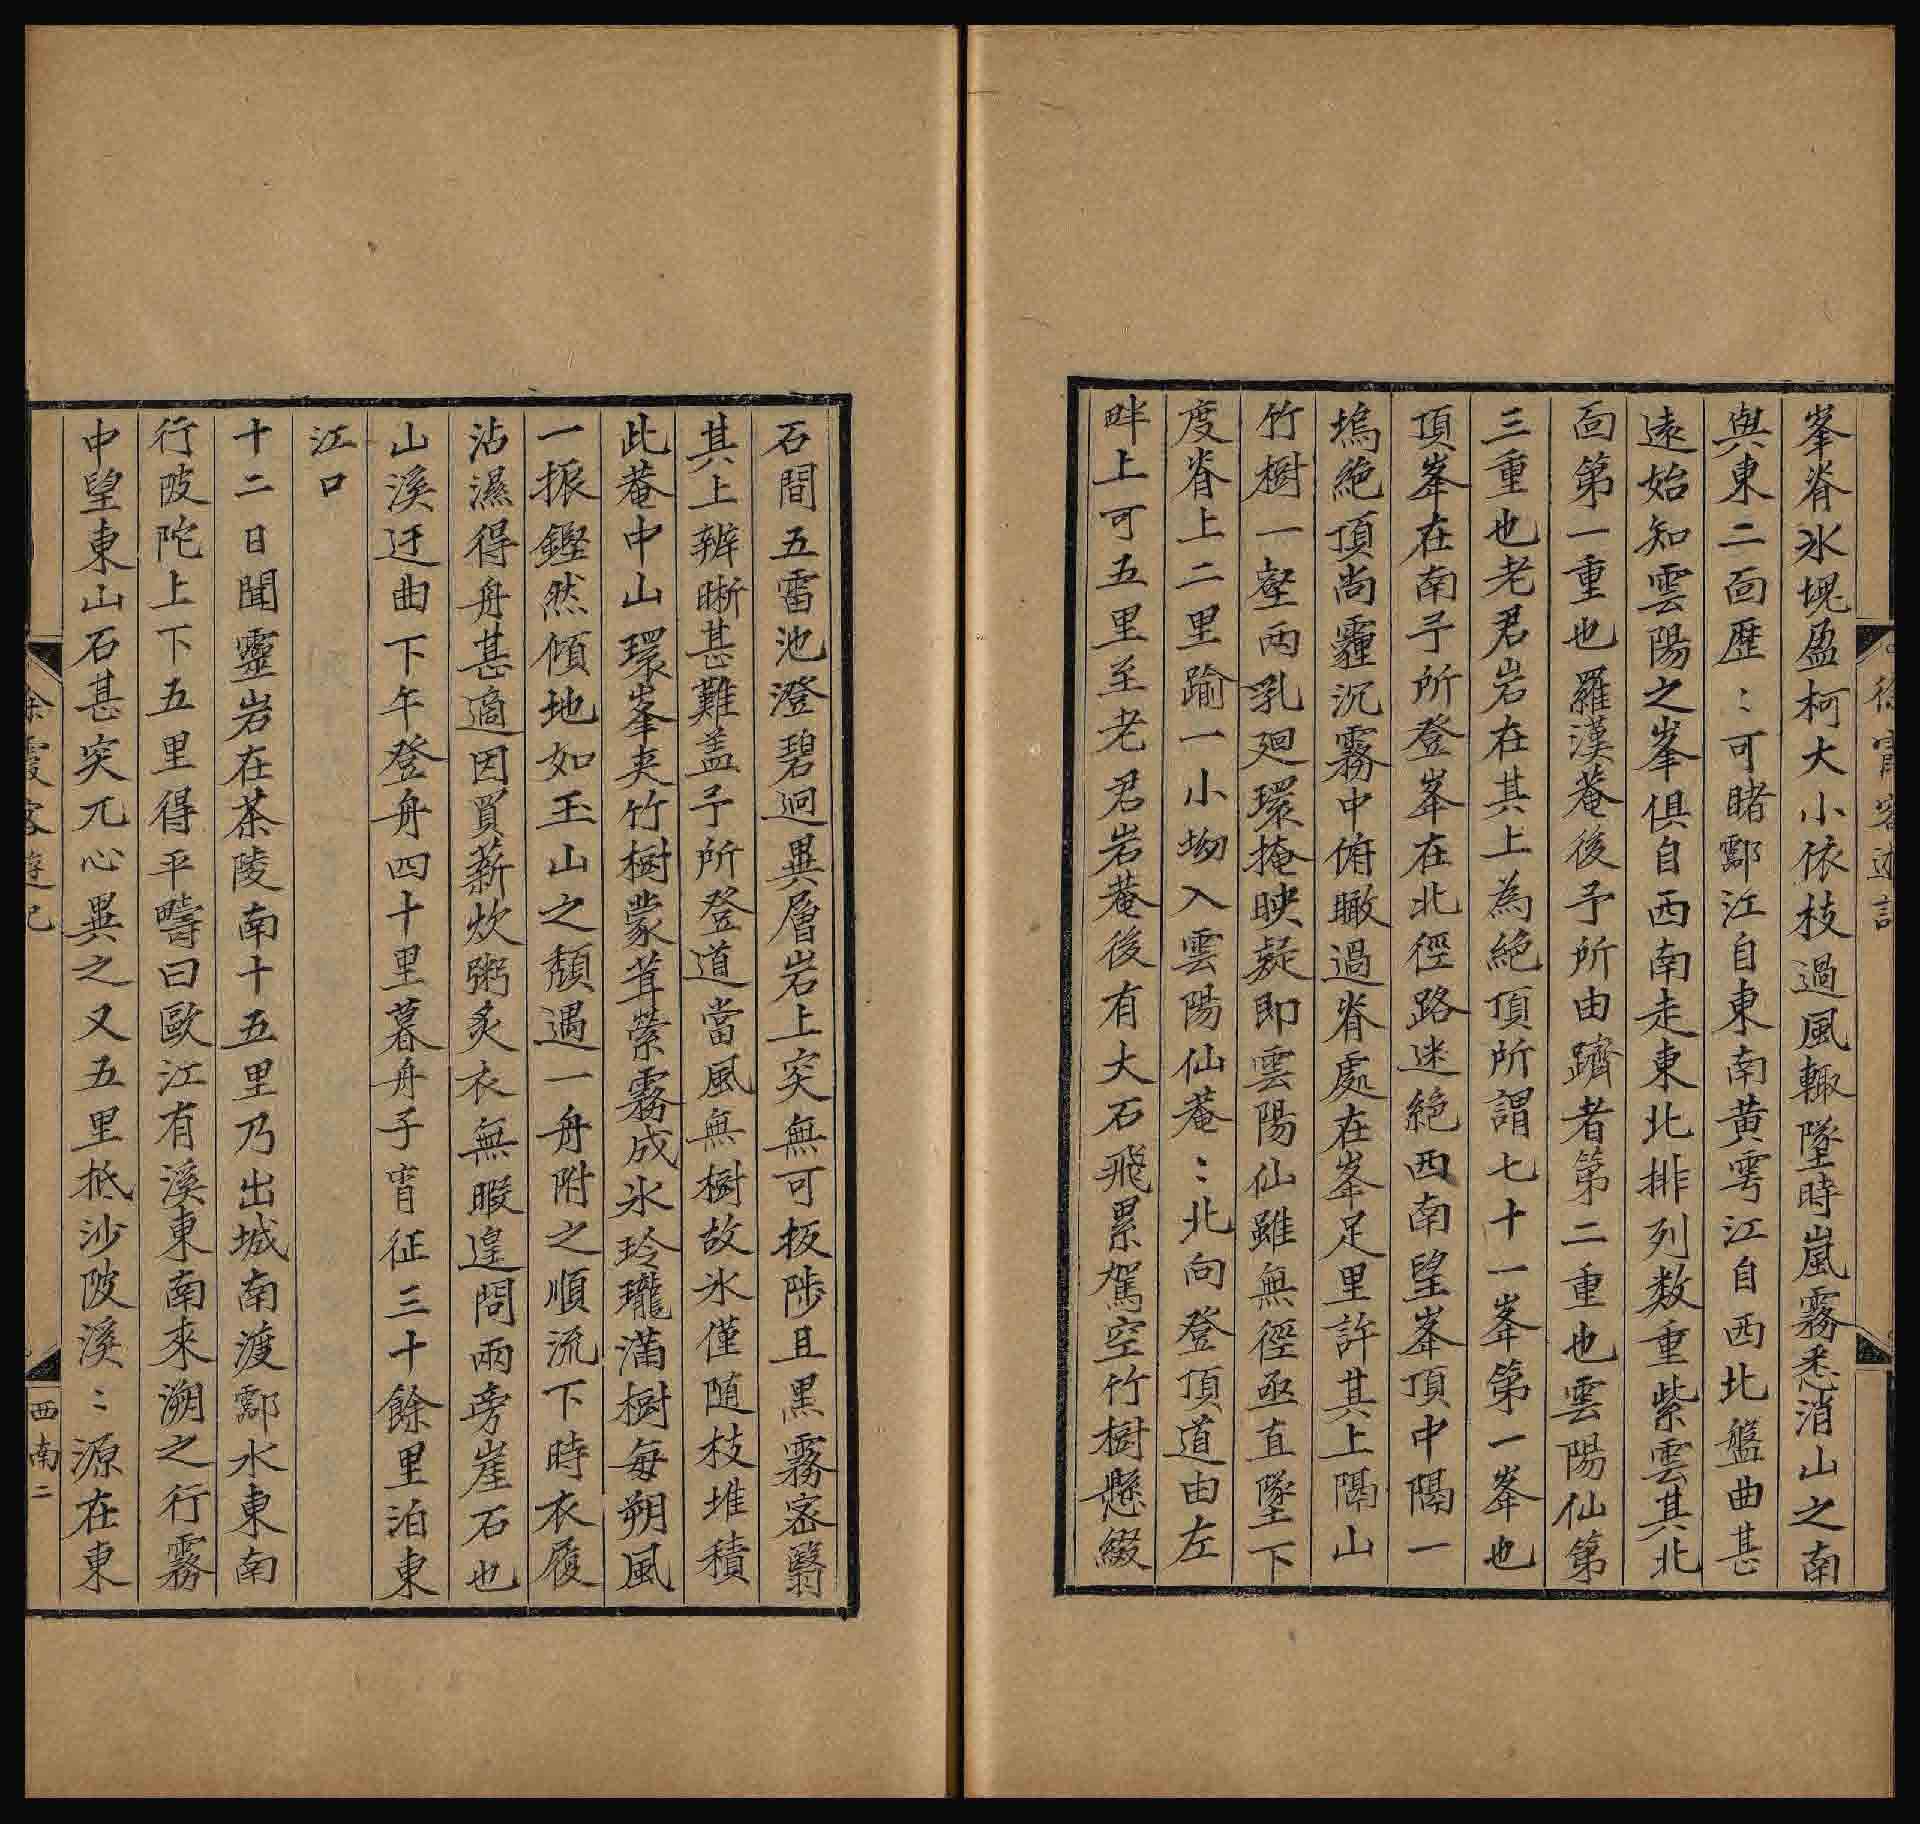 峯脊氷塊盈柯大小依枝遇風輙墜時嵐霧悉消山之南
與東二面歷〻可睹酃江自東南黄雩江自西北盤曲甚
遠始知雲陽之峯俱自西南走東北排列数重紫雲其北
面第一重也羅漢菴後予所由躋者第二重也雲陽仙第
三重也老君岩在其上為絶頂所謂七十一峯第一峯也
頂峯在南予所登峯在北徑路迷絶西南望峯頂中隔一
塢絶頂尚霾沉霧中俯瞰過脊處在峯足里許其上隔山
竹樹一壑两乳廻環掩映疑即雲陽仙雖無徑亟直墜下
度脊上二里踰一小坳入雲陽仙菴〻北向登頂道由左
畔上可五里至老君岩菴後有大石飛累駕空竹樹懸綴
石間五雷池澄碧迥異層岩上突無可扳陟且黒霧密翳
其上辨晰甚難盖予所登道當風無樹故氷僅随枝堆積
此菴中山環峯夹竹樹蒙茸縈霧成氷玲瓏滿樹每朔風
一振鏗然傾地如玉山之頽遇一舟附之順流下時衣履
沾濕得舟甚適因買薪炊粥炙衣無暇遑問兩旁崖石也
山溪迂曲下午登舟四十里暮舟子宵征三十餘里泊東
江口
十二日聞靈岩在茶陵南十五里乃出城南渡酃水東南
行陂陀上下五里得平疇曰歐江有溪東南來溯之行霧
中望東山石甚突兀心異之又五里抵沙陂溪〻源在東
徐霞客遊記
西南二